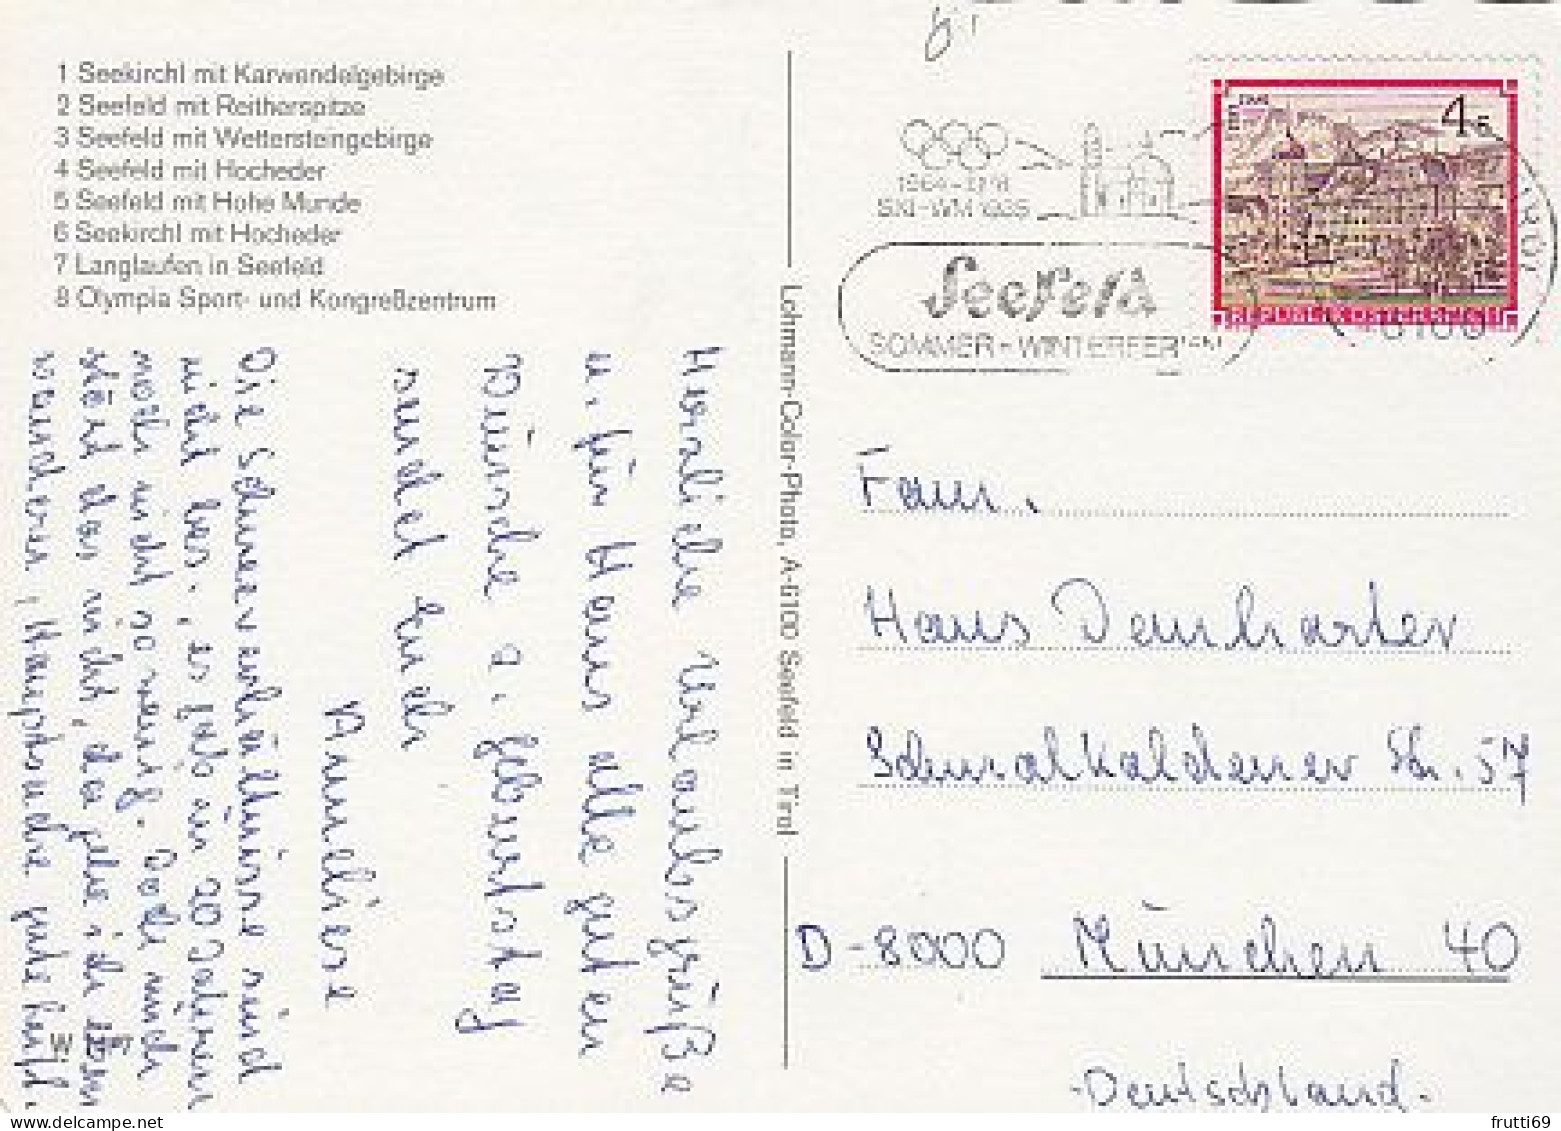 1 Seekirchl mit Karwendelgebirge
2 Seefeld mit Reitherspitze
3 Seefeld mit Wettersteingebirge
4 Seefeld mit Hocheder
5 Seefeld mit Hohe Munde
6 Seekirchl mit Hocheder
7 Langlaufen in Seefeld
8 Olympia Sport- und Kongreßzentrum
Herzliche Urlaubsgrüße
u. für Hans alle guten
Wünsche z. Geburtstag
sendet Euch
Anneliese
Die Schneeverhältnisse sind
nicht bes., es gab in 20 Jahren
noch nicht so wenig. Doch mich
stört das nicht, da gehe ich eben
wandern, Hauptsache gute Luft.
Lohmann-Color-Photo, A-6100 Seefeld in Tirol
1964-1976
SKI-WM 1985
Seefeld
SOMMER-WINTERFERIEN
4 S
REPUBLIK ÖSTERREICH
6100
Fam.
Hans Demharter
Schmalkaldener Str. 57
D-8000 München 40
-Deutschland-
frutti69